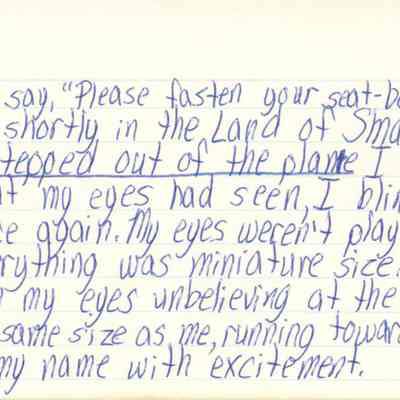 say, "Please fasten your seat-b
shortly in the Land of Sma
tepped out of the plane I
at my eyes had seen, I blin
e again. My eyes weren't play
rything was miniature size.
my eyes unbelieving at the
same size as me, running towar
my name with excitement.